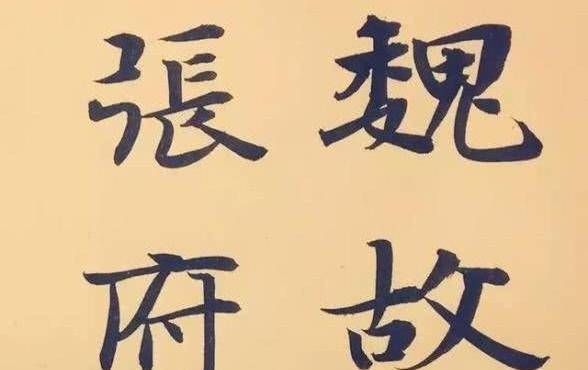 魏故
張府